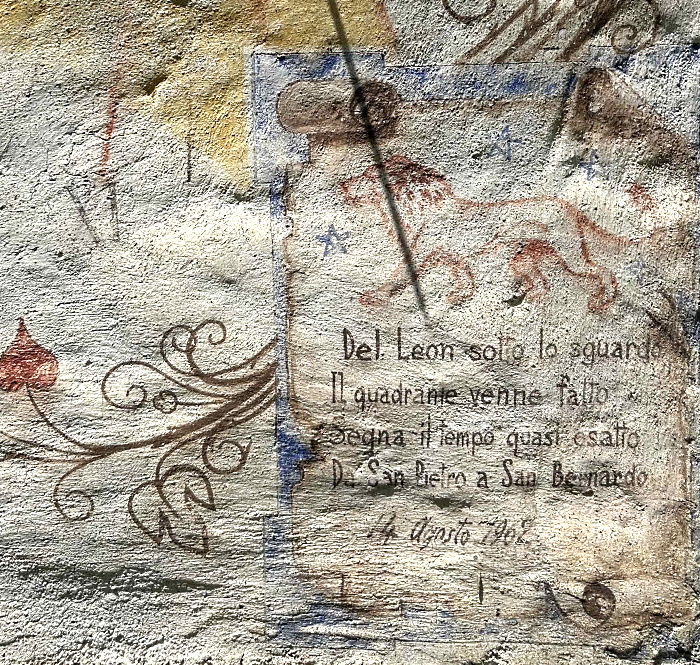 Del Leon sotto lo sguardo
Il quadrante venne fatto
Segna il tempo quasi esatto
Da San Pietro a San Bernardo
14 Agosto 1902